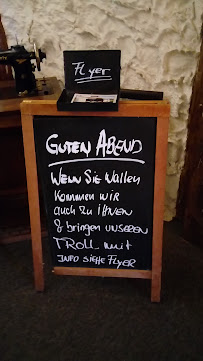 Flyer
GUTEN ABEND
WENN SIE WOLLEN
Kommmen WIR
auch zu IHNEN
& bringen UNSEREN
TROLL mit
INFO SIEHE FLYER